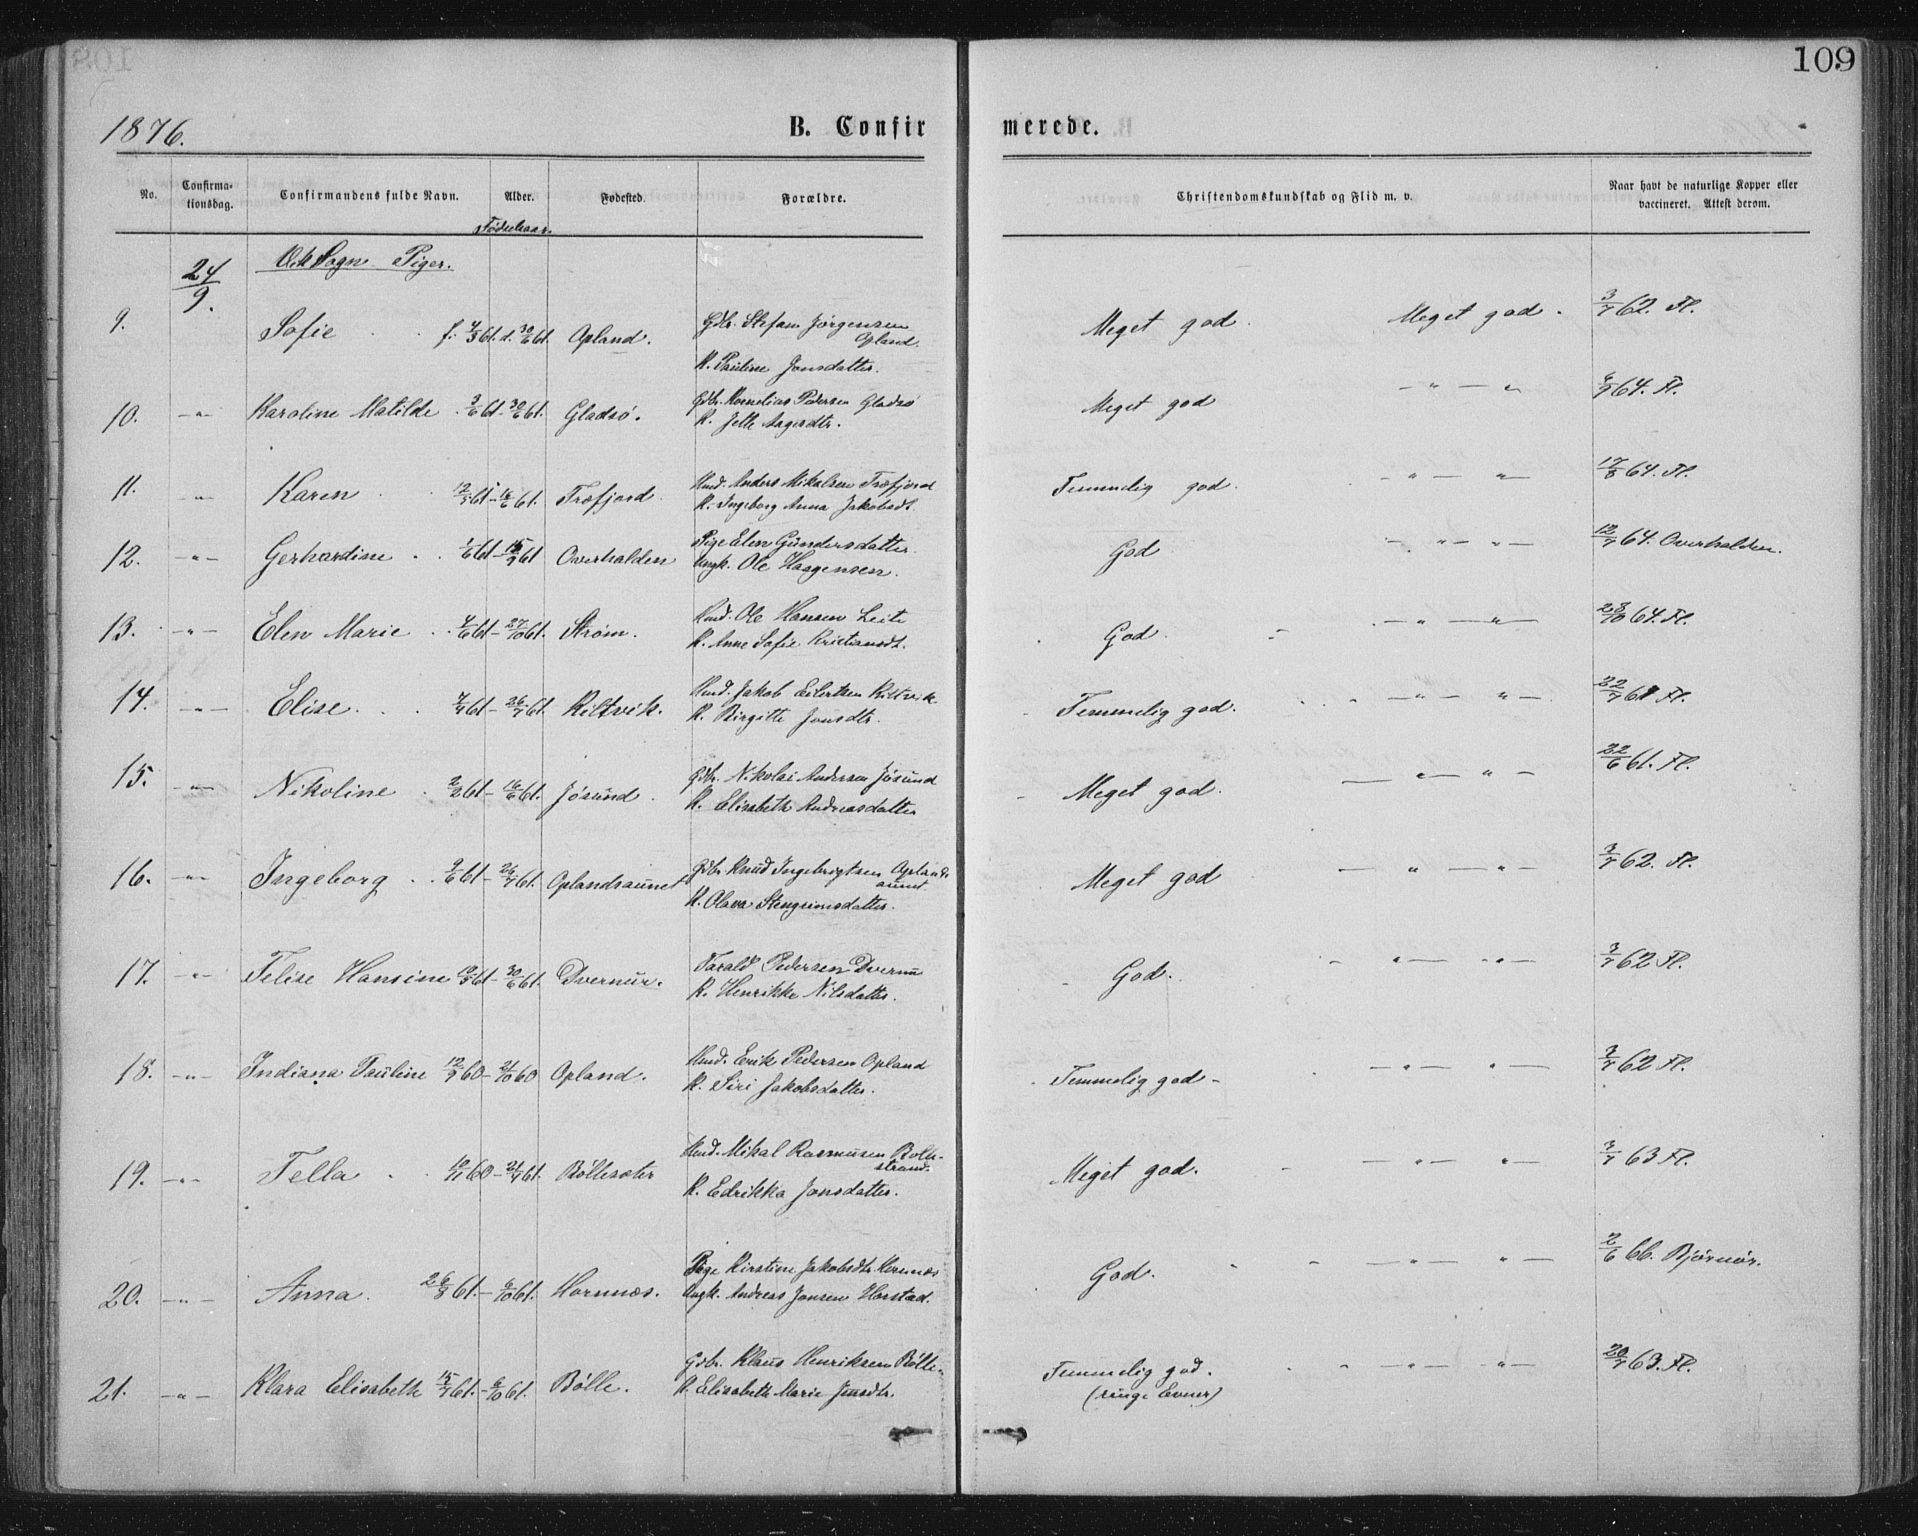 109
1876.
B. Confir
merede.
No.
Confirma-
tionsdag.
Confirmandens fulde Navn.
Alder.
Fødselsaar.
Fødested.
Forældre.
Christendomskundskab og Flid m. v.
Naar havt de naturlige Kopper eller
vaccineret. Attest derom.
24/9. Sogn Piger.
9. Sofie f. 4/5 61. d. 30/6 61. Opland. Gdbr. Stefan Jørgensen Opland. Meget god. Meget god. 3/7 62. Fl.
K. Pauline Jonsdatter.
10. -"- Karoline Matilde 3/6 61. 30/6 61. Gladsø. Gdbr. Kornelius Pedersen Gladsø Meget god -"- "- 6/9 64. Fl.
K. Jette Aagesdtr.
11. -"- Karen 61 - 16/6 61. Træfjord. Hmd. Anders Mikalsen Træfjord Temmelig god. "- "- 17/8 64. Fl.
K. Ingeborg Anna Jakobsdt.
12. -"- Gerhardine 1/6 61 - 15/9 61 Overhalden Pige Elen Gundersdatter God "- "- 12/7 64. Overhalden.
Ungk. Ole Haagensen.
13. -"- Elen Marie 4/6 61 - 27/10 61. Strøm. Hmd. Ole Hansen Leite God. -"- "- 23/10 64. Fl.
K. Anne Sofie Kristiansdt.
14. -"- Elise. 7/4 61 - 26/7 61. Kiltvik. Hmd. Jakob Eilertsen Kiltvik Temmelig god. -"- "- 22/7 61 Fl.
K. Birgitte Jonsdtr.
15. -"- Nikoline 2/2 61 - 16/6 61. Jøsund. Gdbr. Nikolai Andersen Jøsund Meget god. -"- "- 22/6 61. Fl.
K. Elisabeth Andreasdatter
16. -"- Ingeborg 9/6 61 - 26/7 61. Oplandsaunet Gdbr. Knud Ingebrigtsen Oplands
aunet Meget god -"- "- 3/7 62. Fl.
K. Olava Stengrimsdatter.
17. -"- Felise Hansine 61 - 30/6 61. Dvernur. Tarald Pedersen Dvernu God. -"- "- 3/7 62 Fl.
K. Henrikke Nilsdatter.
18. -"- Indiana Pauline 12/9 60 - 21/10 60 Opland. Hmd. Erik Pedersen Opland Temmelig god - -"- "- 3/7 62 Fl.
K. Siri Jakobsdatter.
19. -"- Tella 12/11 60 - 21/4 61. Bøllesæter Hmd. Mikal Rasmusen Bølle-
strand. Meget god. -"- "- 3/7 63 Fl.
K. Edrikka Jonsdatter.
20. -"- Anna. 26/8 61. - 6/10 61. Hornnæs. Pige Kirstine Jakobsdtr. Hornnæs God. -"- "- 2/6 66. Bjørnør.
Ungk. Andreas Jonsen Harstad.
21. -"- Klara Elisabeth 15/7 61. - 6/10 61. Bølle. Gdbr. Klaus Henriksen Bølle. Temmelig god. -"- "- 20/7 63. Fl.
K. Elisabeth Marie Jensdtr. (ringe Evner)